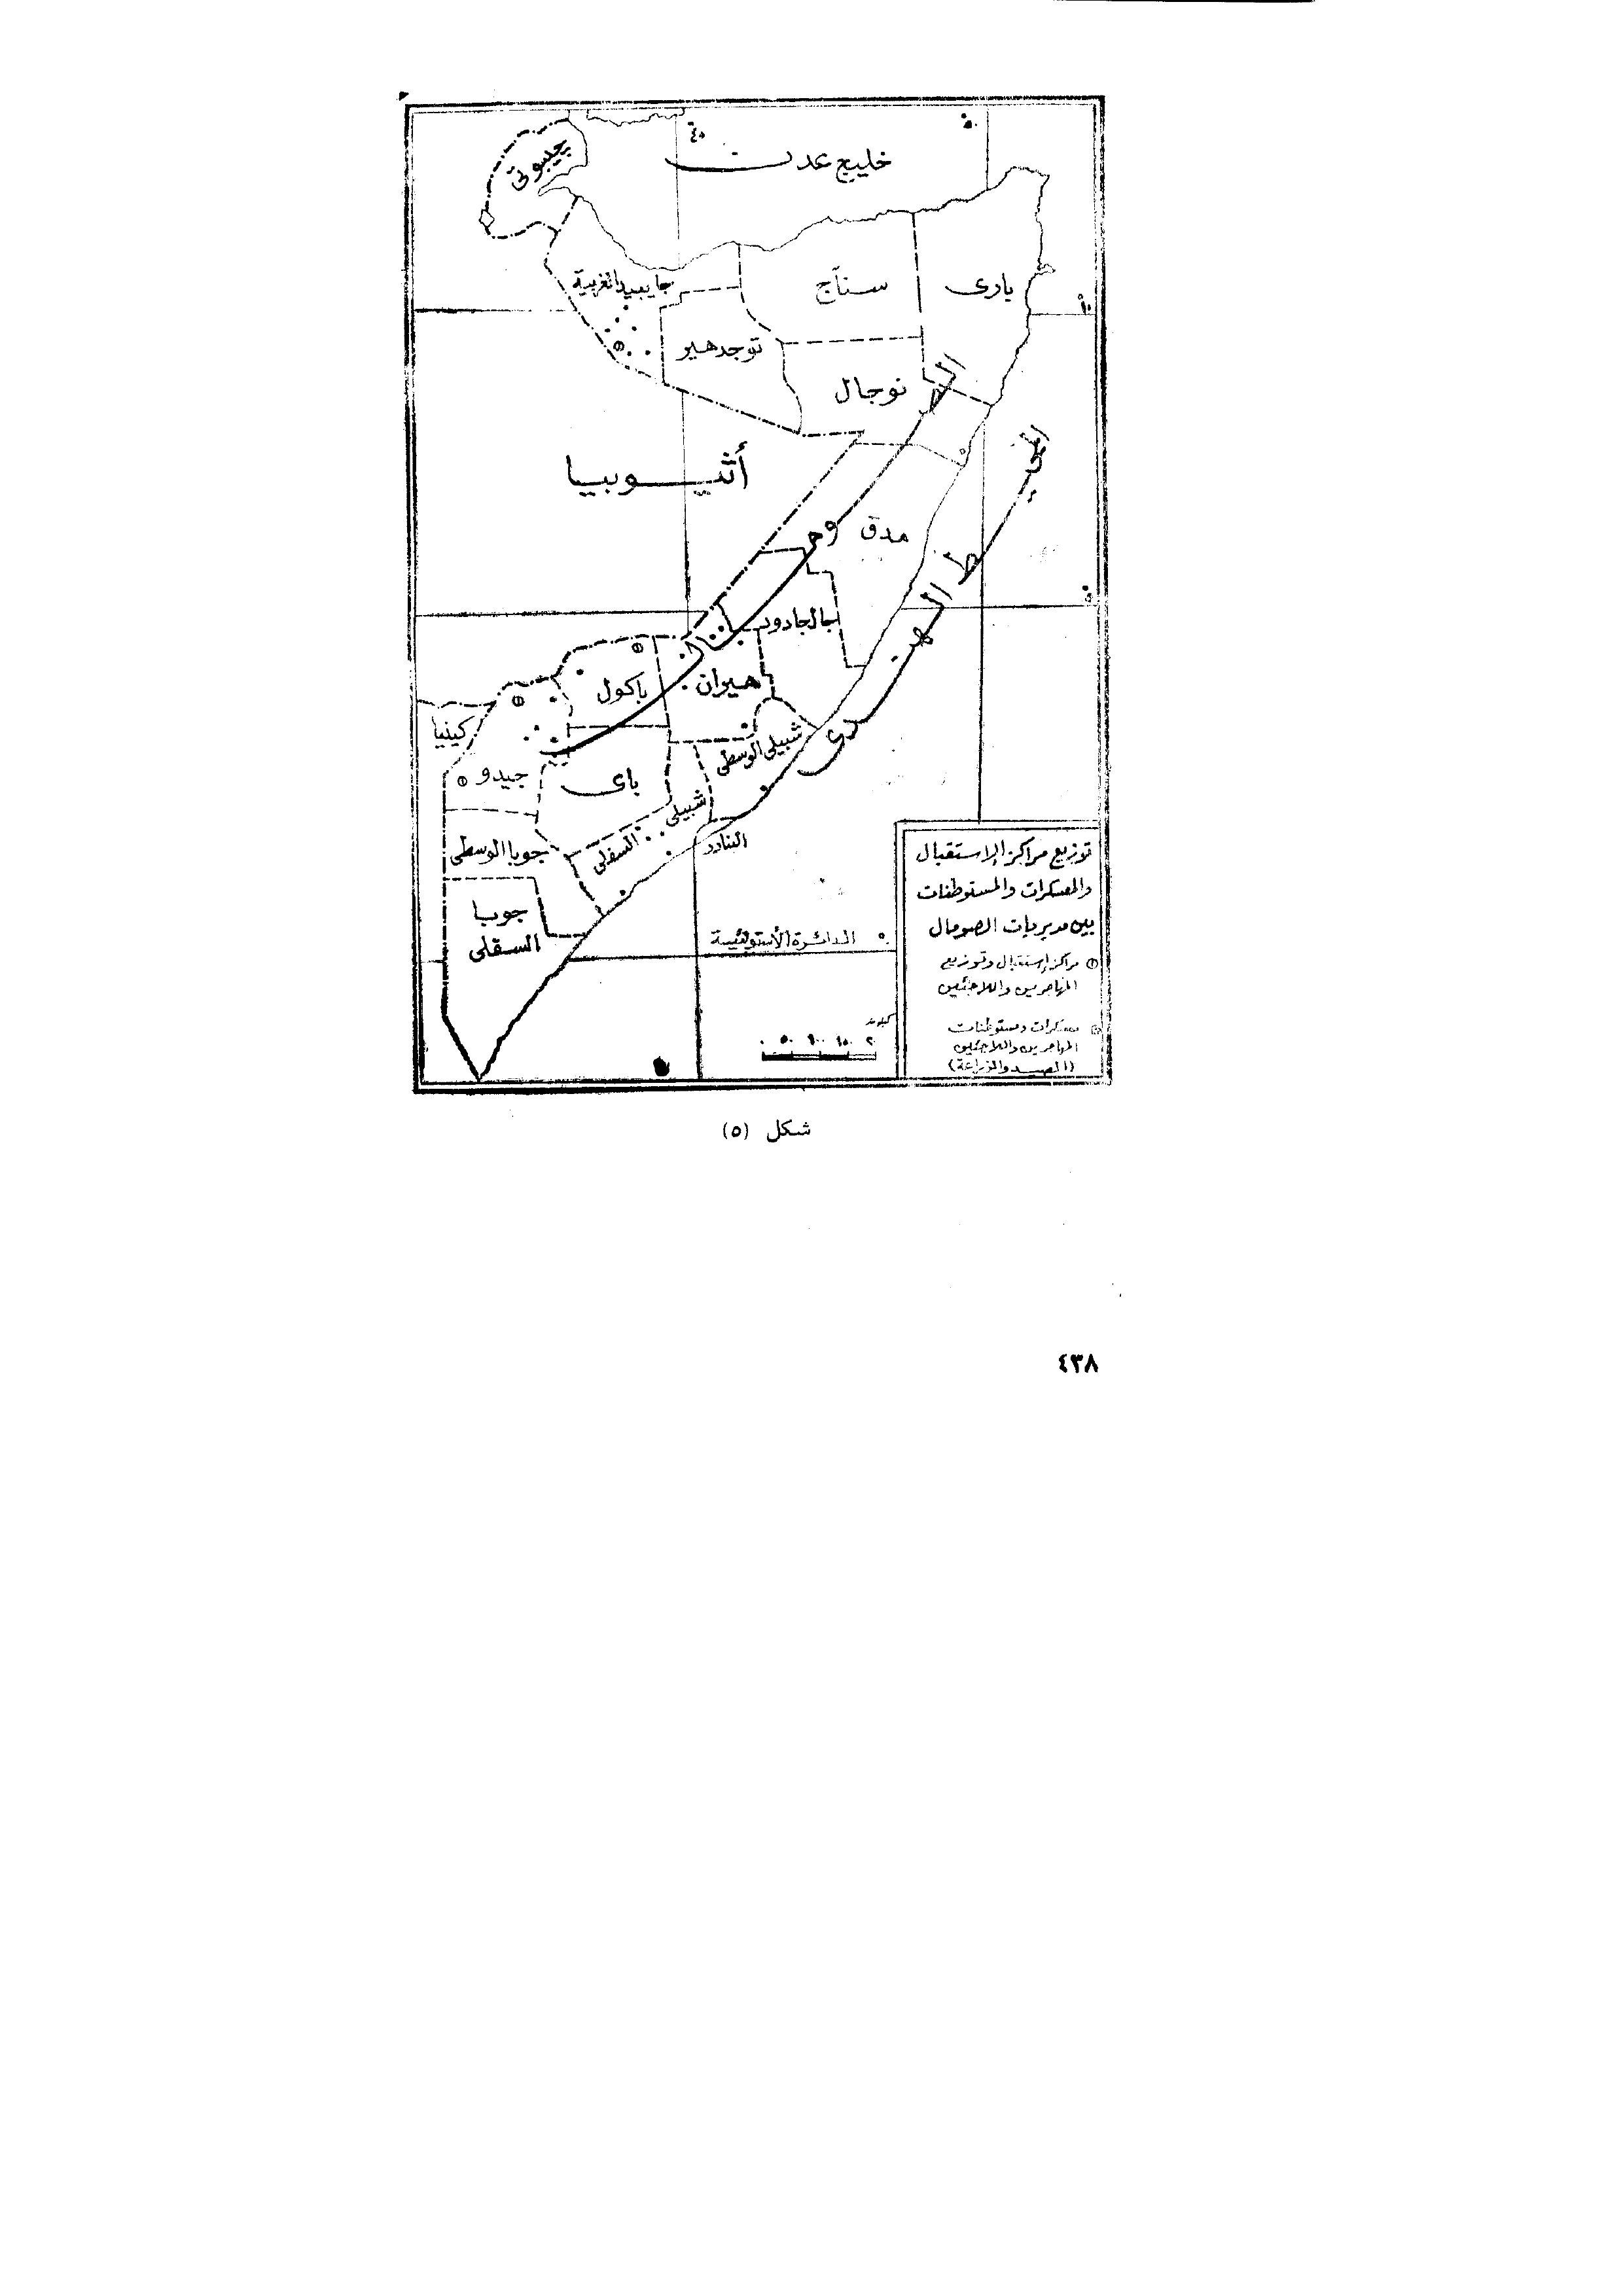 خليج عدن
٤٥
٥٠
جيبوتي
جاليبيد الغربية
سناج
بارى
١٠
توجدهير
نوجال
أثيوبيا
الصومال
المحيط الهندى
مدق
جالجادود
٥
هيران
باكول
كينيا
جيدو
باى
شبيلى الوسطى
شبيلى السفلى
البنادر
جوبا الوسطى
جوبا
السفلى
الدائرة الأستوائية
٠
كيلومتر
٠ ٥٠ ١٠٠ ١٥٠ ٢٠٠
توزيع مراكز الإستقبال
والمعسكرات والمستوطنات
بين مديريات الصومال
مراكز إستقبال وتوزيع
المهاجرين واللاجئين
معسكرات ومستوطنات
المهاجرين واللاجئين
(الصيد والزراعة)
شكل (٥)
٤٣٨